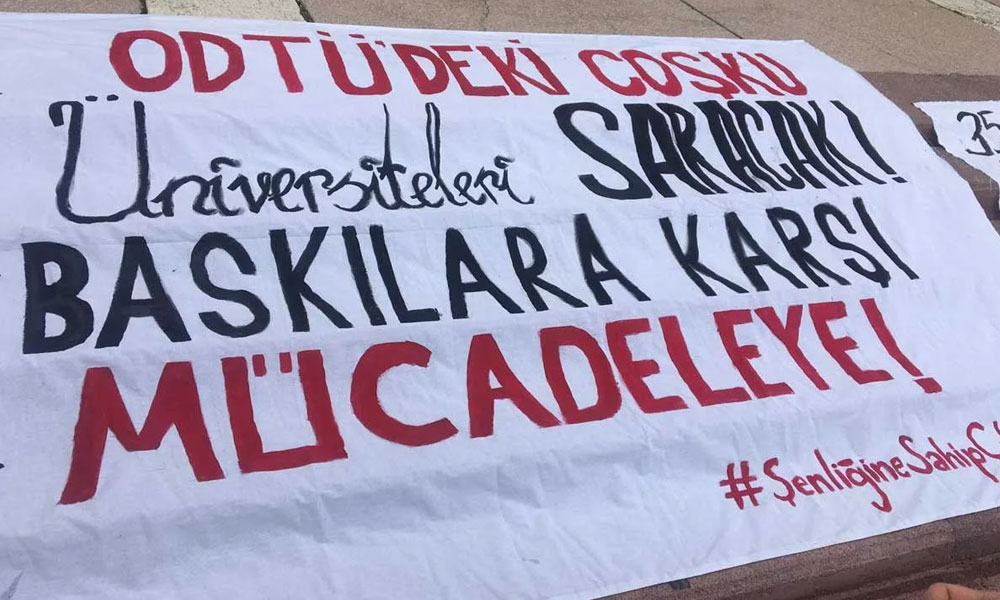 ODTÜ'DEKİ COŞKU
Üniversiteleri SARACAK!
BASKILARA KARŞI
MÜCADELEYE!
#ŞenliğineSahip
35